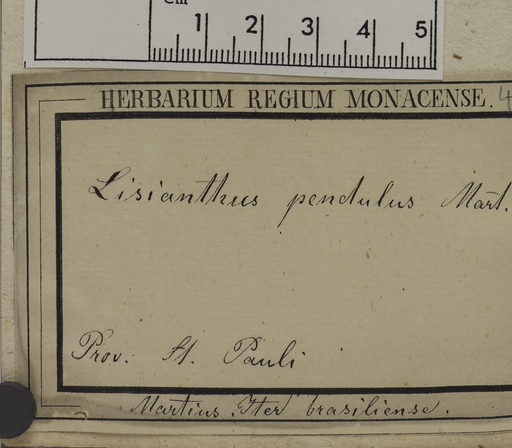 Cm
1 2 3 4 5
HERBARIUM REGIUM MONACENSE. 4
Lisianthus pendulus Mart.
Prov. St. Pauli
Martius. Iter brasiliense.